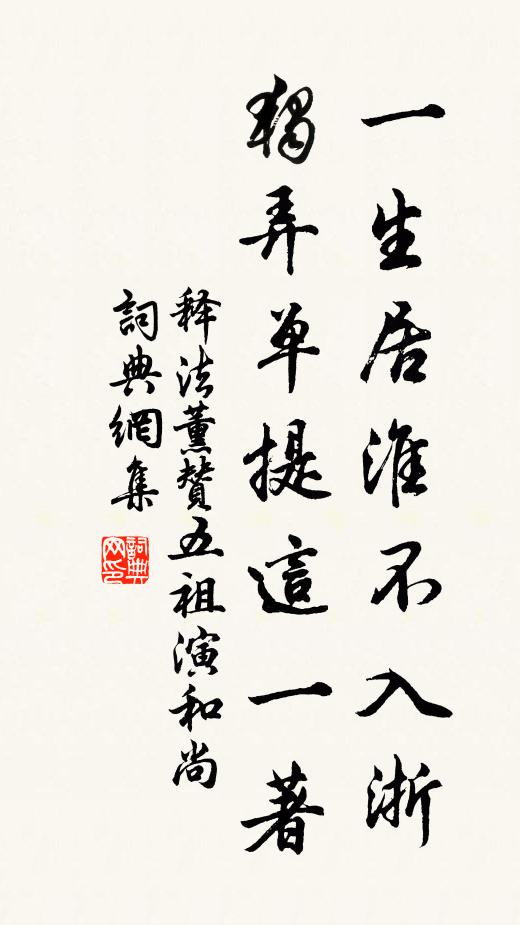 一生居淮不入浙
獨弄单提這一著
释法薰贊五祖演和尚
詞典網集
詞典網印